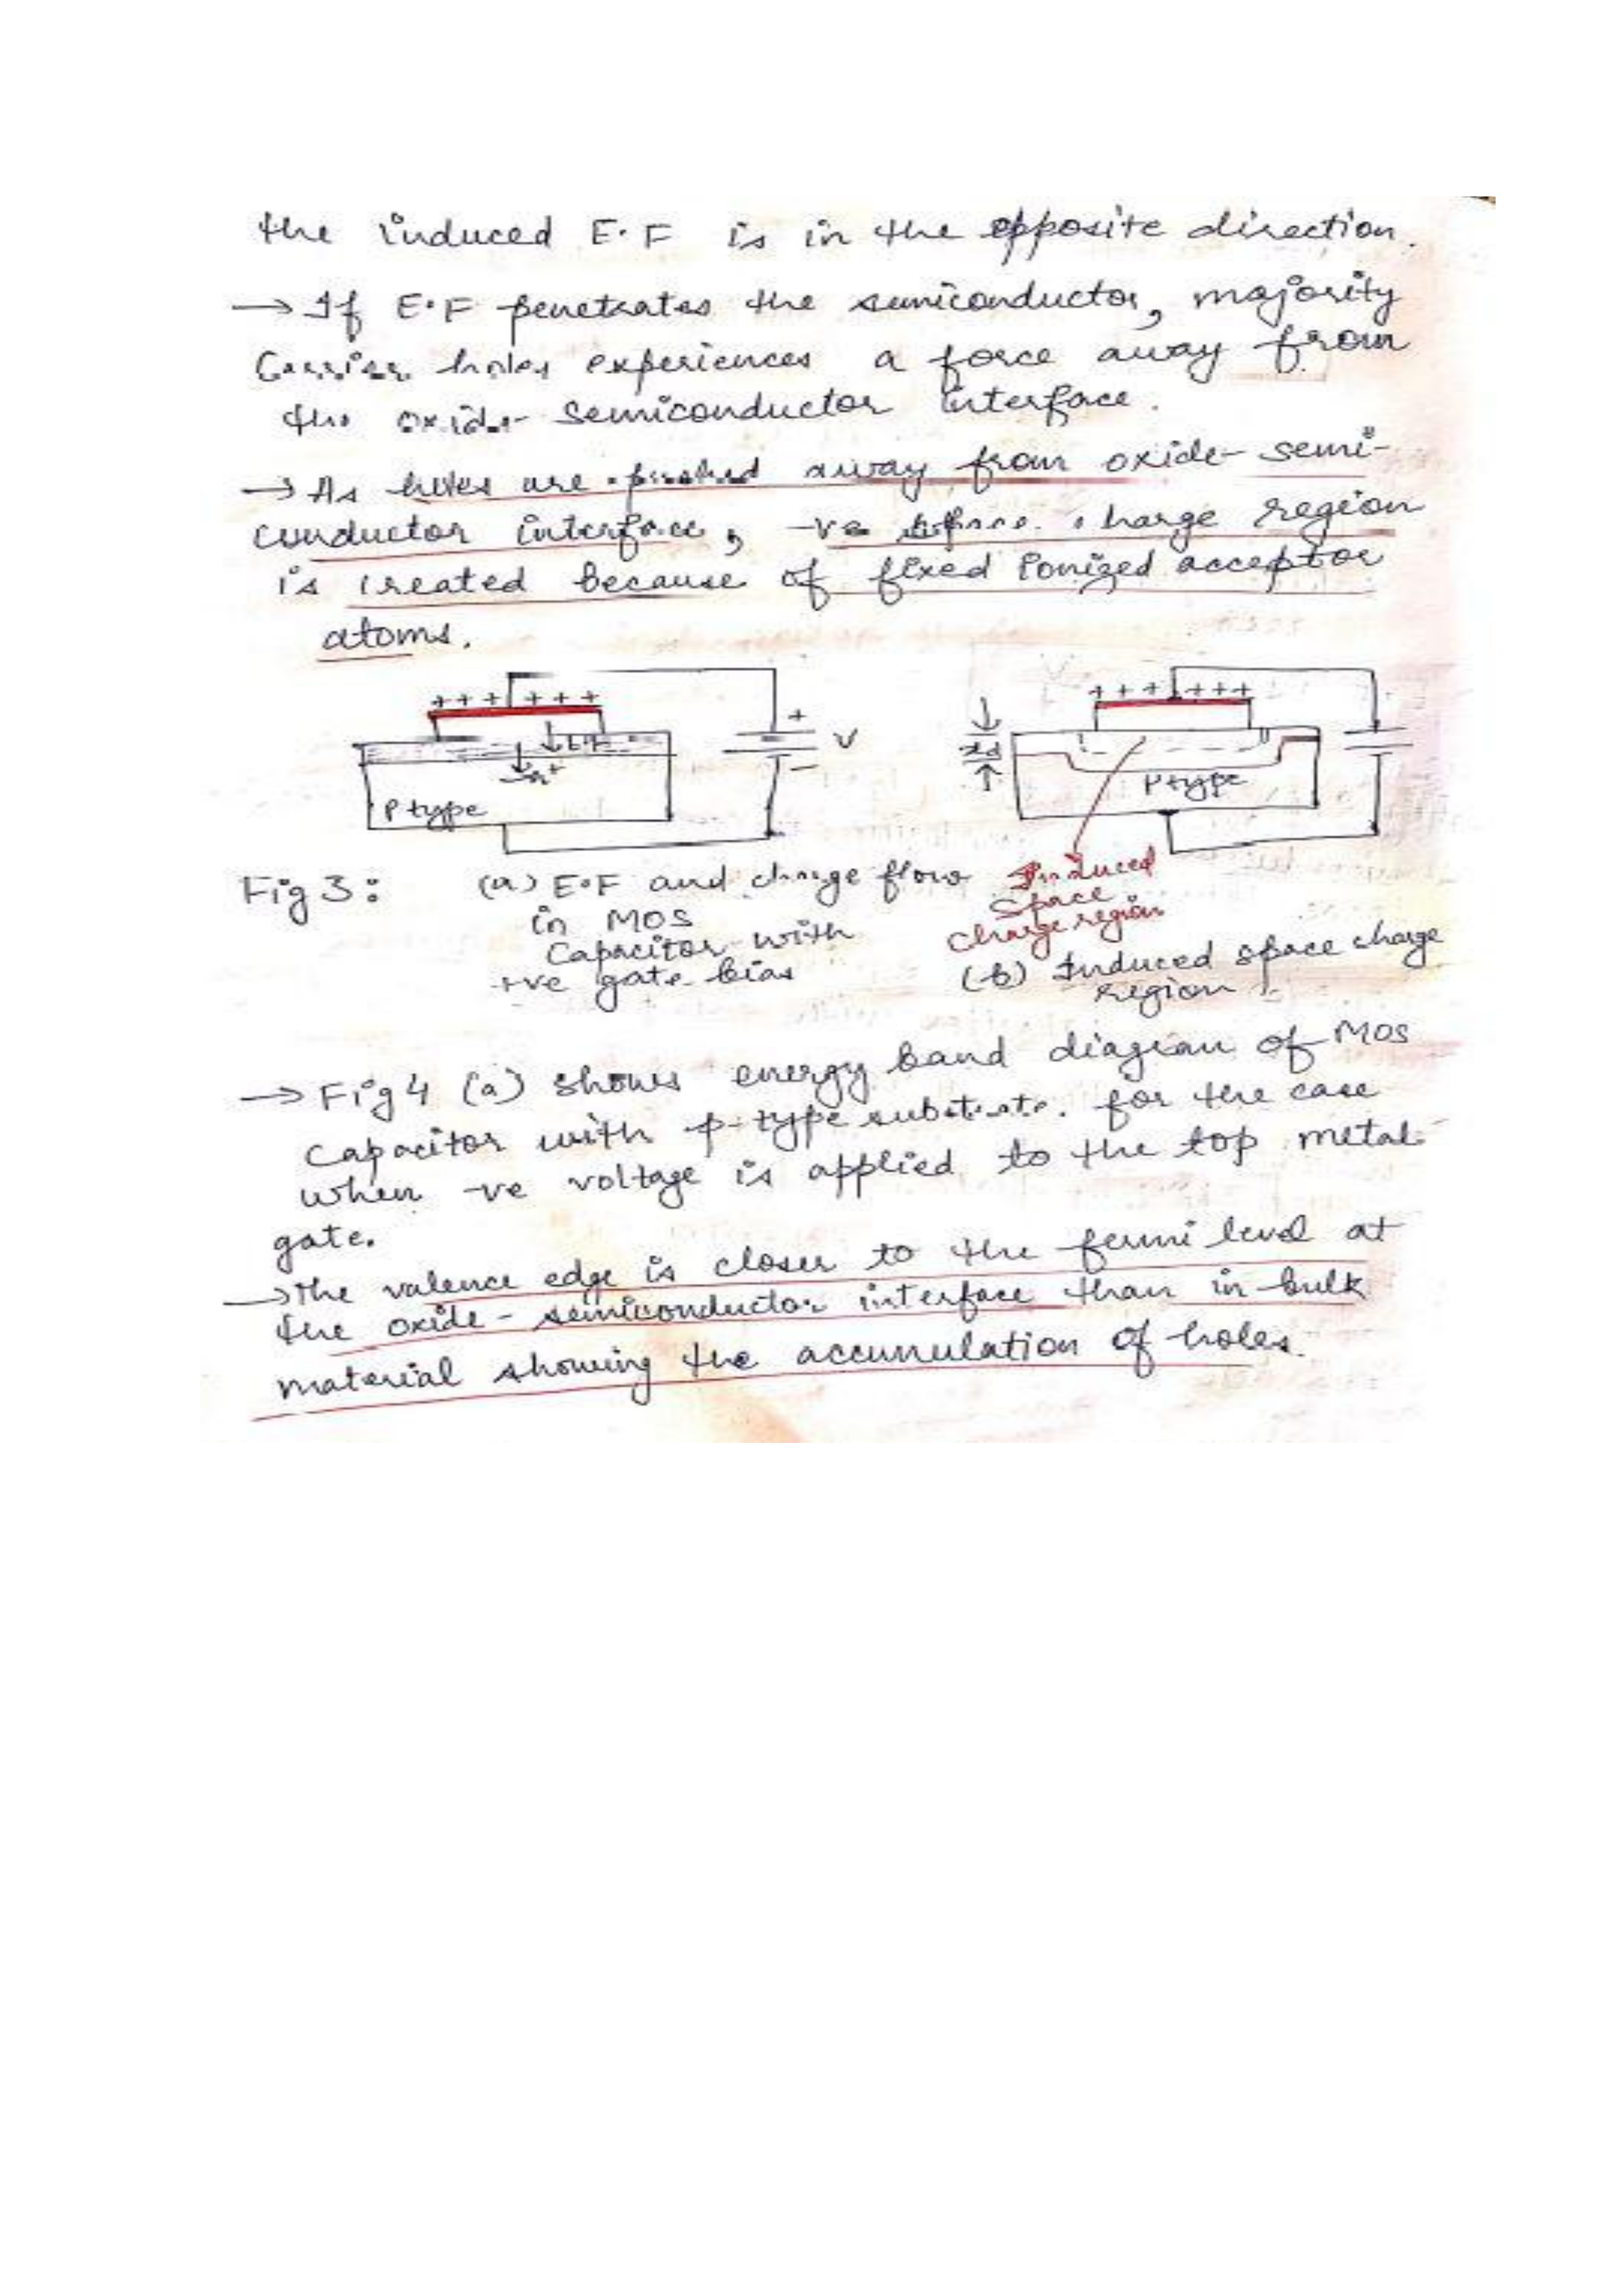 the induced E.F is in the opposite direction.
→ If E.F penetrates the semiconductor, majority
Carrier holes experiences a force away from
the oxide- semiconductor interface.
→ As holes are pushed away from oxide- semi-
conductor interface, -ve space charge region
is created because of fixed ionized acceptor
atoms.
+ + + + + +
E.F
h+
P type
+
V
-
+ + + + + +
xd
P type
Induced
Space
Charge region
Fig 3: (a) E.F and charge flow
in MOS
Capacitor with
+ve gate bias
(b) Induced space charge
region
→ Fig 4 (a) shows energy band diagram of MOS
capacitor with p-type substrate. for the case
when -ve voltage is applied to the top metal
gate.
→ The valence edge is closer to the fermi level at
the oxide - semiconductor interface than in bulk
material showing the accumulation of holes.